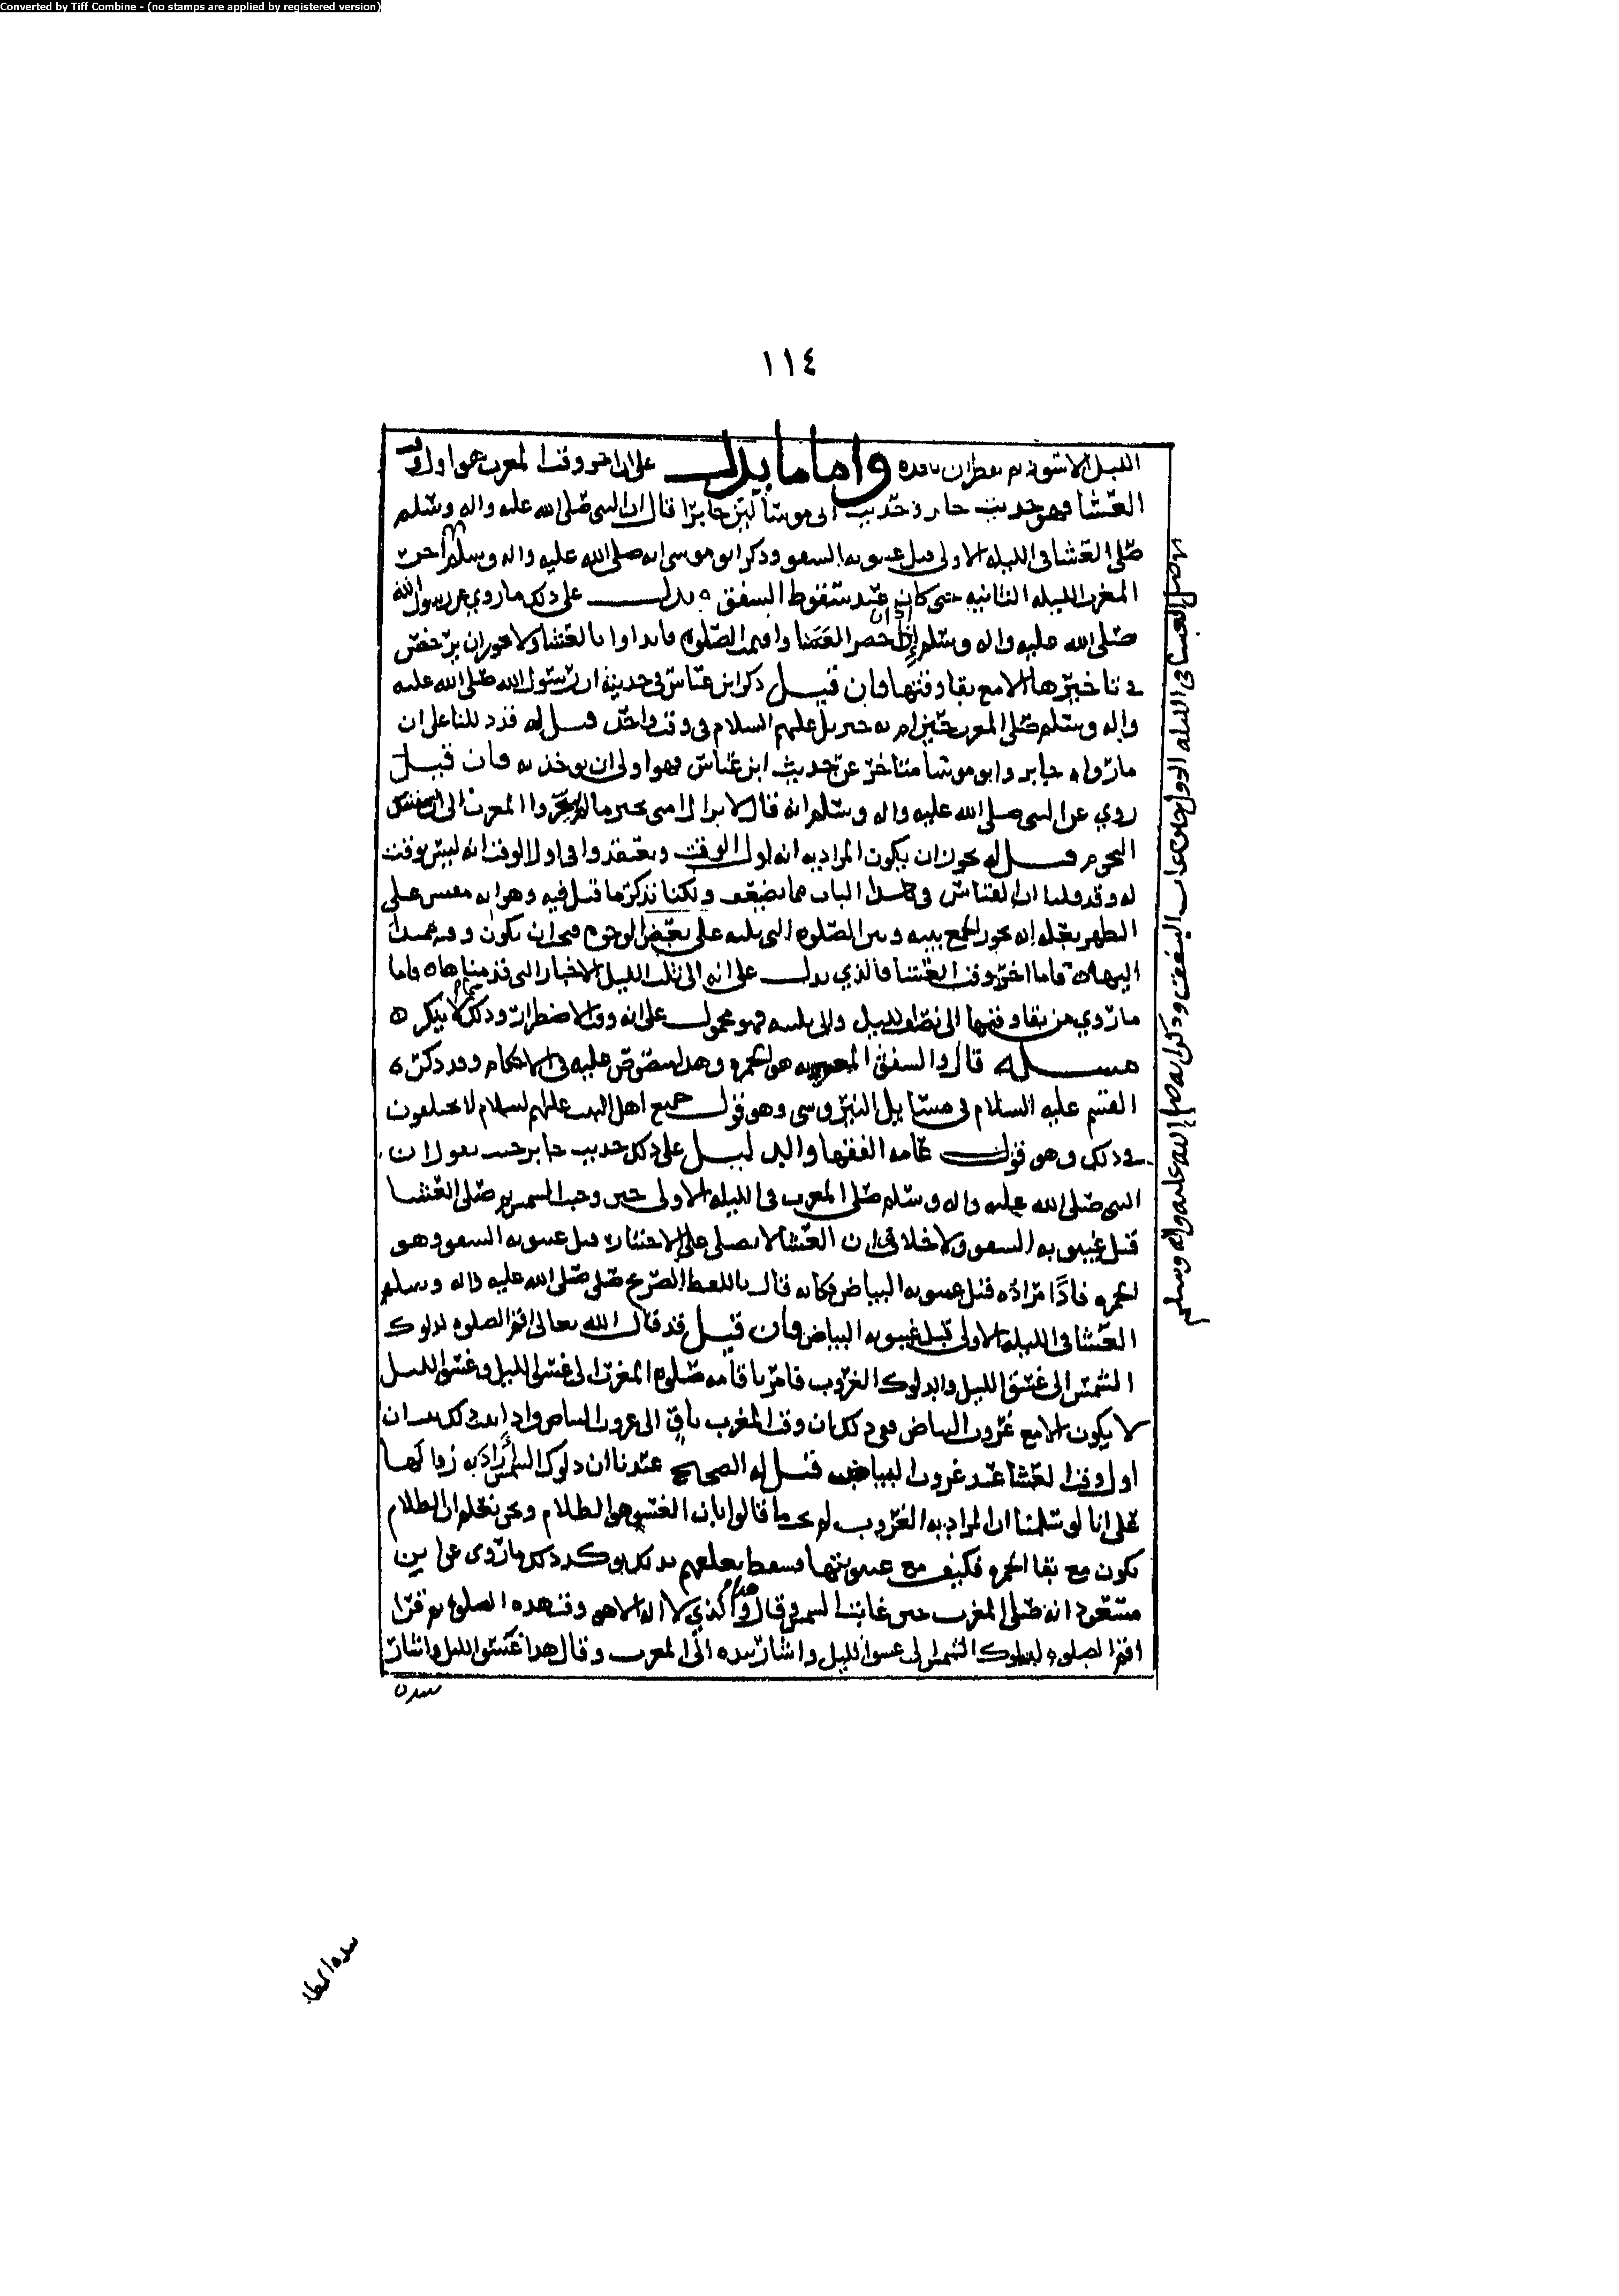 Converted by Tiff Combine - (no stamps are applied by registered version)
١١٤
الليل الا شوته ثم واما ما يدل على ان اخر وقت المغرب هو اول وقت
العشا فهو حديث جابر وحديث ابى موسا لان جابرا قال ان النبى صلى الله عليه واله وسلم
صلى العشا فى الليله الاولى قبل غيبوبه الشفق وذكر ابو موسى انه صلى الله عليه واله وسلم اخر
المغرب الليله الثانيه حتى كان عند سقوط الشفق ه يدل على ذلك ما روي عن رسول الله
صلى الله عليه واله وسلم اذا حضر العشا واقيمت الصلوه فابداوا بالعشا ولا يجوز ان يرخص
فى تاخيرها الا مع بقا وقتها فان قيل ذكر ابن عباس فى حديثه ان رسول الله صلى الله عليه
واله وسلم صلى المغرب حين ام به جبريل عليهم السلام فى وقت واحد قيل له قد دللنا على ان
ما رواه جابر وابو موسا متاخر عن حديث ابن عباس فهو اولى ان يوخذ به فان قيل
روي عن النبى صلى الله عليه واله وسلم انه قال لا يزال امتى بخير ما لم يوخروا المغرب الى ان تشتبك
النجوم قيل له يجوز ان يكون المراد به انه اول الوقت ويعتقدوا فى اول الوقت انه ليس بوقت
له وقد قلنا ان القياس فى هذا الباب مما يضعف ولكنا نذكر ما قيل فيه وهو انه مقيس على
الظهر بعله انه يجوز الجمع بينه وبين الصلوه التى يليه على بعض الوجوه فيجب ان يكون وقته ممتدا
اليها ه فاما اخر وقت العشا فالذي يدل على انه الى ثلث الليل الاخبار التى قدمناها ه فاما
ما روي من بقا وقتها الى نصف الليل والى ثلثيه فهو محمول على انه وقت الاضطرار وذلك مما لا ينكر ه
مسله قال والشفق المعمول به هو الحمره وهذا منصوص عليه فى الاحكام وقد ذكره
القسم عليه السلام فى مسايل النيروسى وهو قول جميع اهل البيت عليهم السلام لا يختلفون
فى ذلك وهو قول عامه الفقها والدليل على ذلك حديث جابر حيث يقول ان
النبى صلى الله عليه واله وسلم صلى المغرب فى الليله الاولى حين وجبت الشمس ثم صلى العشا
قبل غيبوبه الشفق ولا خلاف فى ان العشا لا يصلى على الاختيار قبل غيبوبه الشفق وهو
الحمره فاذا مراده قبل غيبوبه البياض فكانه قال باللفظ الصريح صلى صلى الله عليه واله وسلم
العشا فى الليله الاولى قبل غيبوبه البياض فان قيل قد قال الله تعالى اقم الصلوه لدلوك
الشمس الى غسق الليل والدلوك الغروب فامر باقامه صلوه المغرب الى غسق الليل وغسق الليل
لا يكون الا مع غروب البياض فوجب ذلك بان وقت المغرب باق الى غروب البياض واذا ثبت ذلك ثبت ان
اول وقت العشا عند غروب البياض قيل له الصحيح عندنا ان دلوك الشمس اراد به زوالها
على انا لو سلمنا ان المراد به الغروب لم يجب ما قالوا بان الغسق هو الظلام ونحن نعلم ان الظلام
يكون مع بقا الحمره فكيف مع غيبوبتها فسقط تعلقهم بذلك يوكد ذلك ما روى عن ابن
مسعود انه صلى المغرب حين غابت الشمس وقال هذا والذي لا اله الا هو وقت هذه الصلوه ثم قرا
اقم الصلوه لدلوك الشمس الى غسق الليل واشار بيده الى المغرب وقال هذا غسق الليل واشار
بيده
صلى العشا فى الليله الاولى قبل غياب الشفق وذكر انه صلى الله عليه واله وسلم